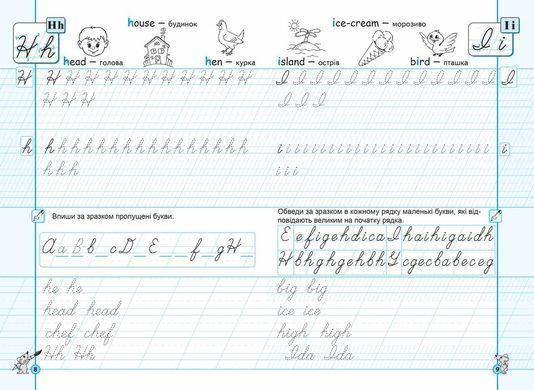 Hh
house – будинок
H h
head – голова
hen – курка
H H H H H H H H H H H H H H H
H H H
h h h h h h h h h h h h h h h h h
h h h
h
Впиши за зразком пропущені букви.
A a B b _ c D _ E _ _ f _ g H _
he he
head head
chef chef
Hh Hh
8
ice-cream – морозиво
Ii
I i
island – острів
bird – пташка
I I I I I I I I I I I I I I
I I I I
i i i i i i i i i i i i i i i i i i i i i
i i i
i
Обведи за зразком в кожному рядку маленькі букви, які від-
повідають великим на початку рядка.
E e f i g e h d i c a I h a i h i g a i d h
big big
ice ice
high high
Ida Ida
9